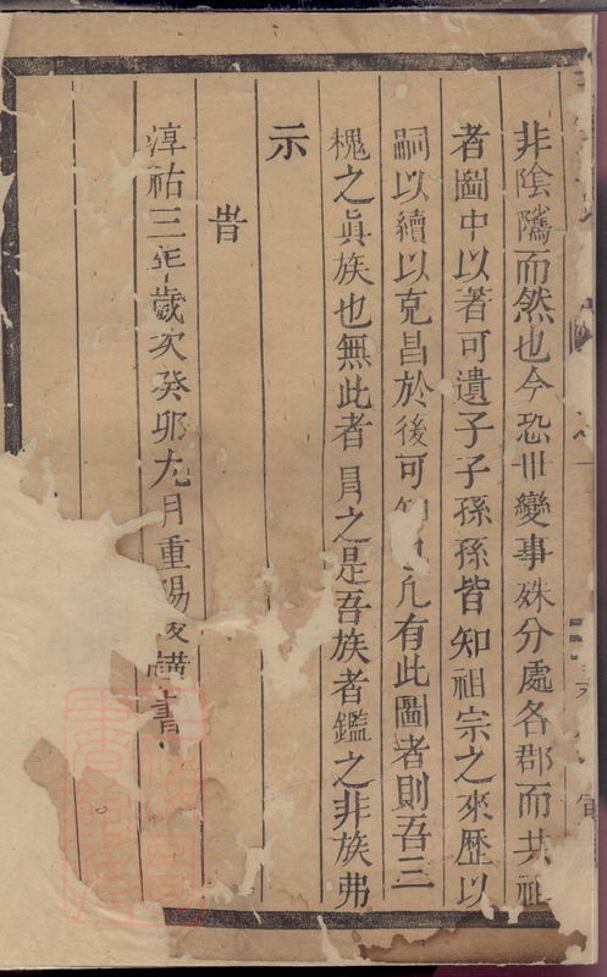 非陰隲而然也今恐丗變事殊分處各郡而共祖
者圖中以著可遺子子孫孫皆知祖宗之來歷以
嗣以續以克昌於後可知凡有此圖者則吾三
槐之眞族也無此者冐之是吾族者鑑之非族弗
示
昔
淳祐三年歲次癸卯九月重陽後書